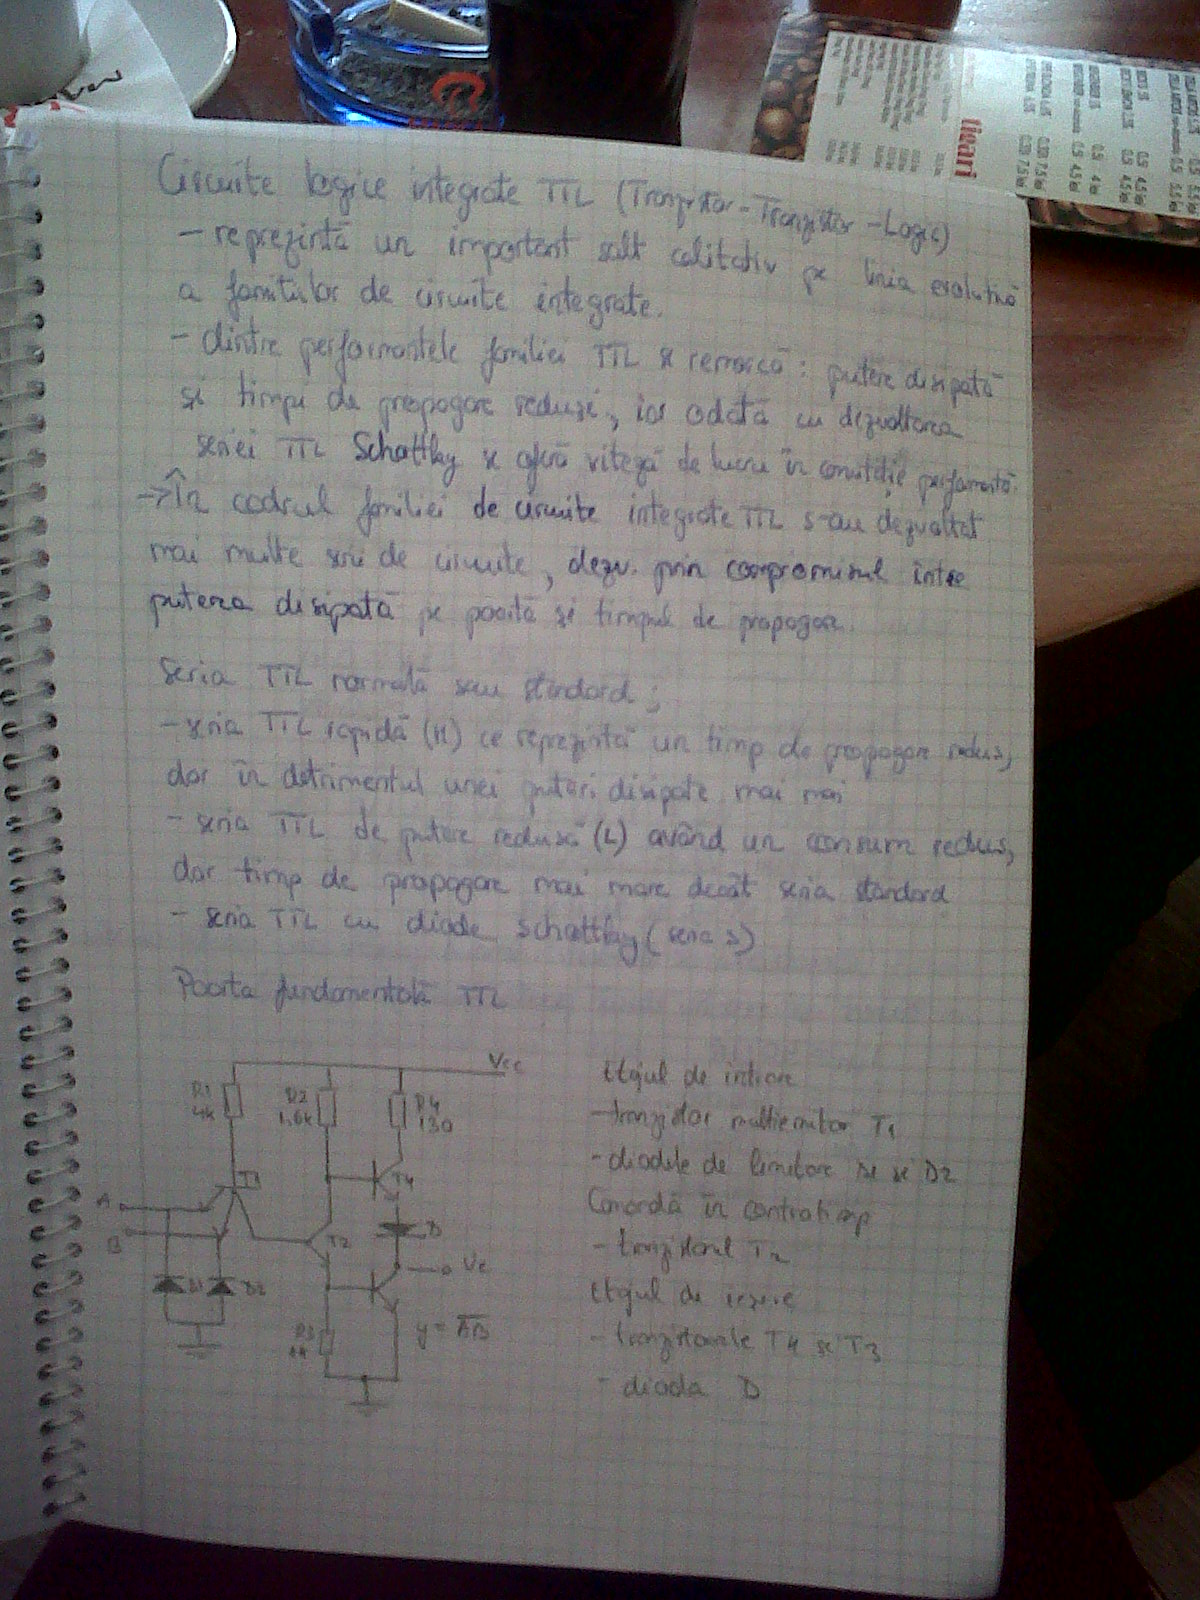 Circuite logice integrate TTL (Tranzistor-Tranzistor-Logic)
- reprezintă un important salt calitativ pe linia evolutivă
a familiilor de circuite integrate.
- dintre performantele familiei TTL se remarcă: putere disipată
și timpi de propagare reduși, iar odată cu dezvoltarea
seriei TTL Schottky se oferă viteză de lucru în condiție performantă.
→ În cadrul familiei de circuite integrate TTL s-au dezvoltat
mai multe serii de circuite, dezv. prin compromisul între
puterea disipată pe poartă și timpul de propagare.
Seria TTL normală sau standard;
- seria TTL rapidă (H) ce reprezintă un timp de propagare redus,
dar în detrimentul unei puteri disipate mai mari
- seria TTL de putere redusă (L) având un consum redus,
dar timp de propagare mai mare decât seria standard
- seria TTL cu diode Schottky (seria S)
Poarta fundamentală TTL
Vcc
R1
4k
R2
1.6k
R4
130
T1
T4
A
B
T2
D
D1
D2
R3
y = A̅B̅
Etajul de intrare
- tranzistor multiemitor T1
- diodele de limitare D1 și D2
Comandă în contratimp
- tranzistorul T2
Etajul de ieșire
- tranzistoarele T4 și T3
- dioda D